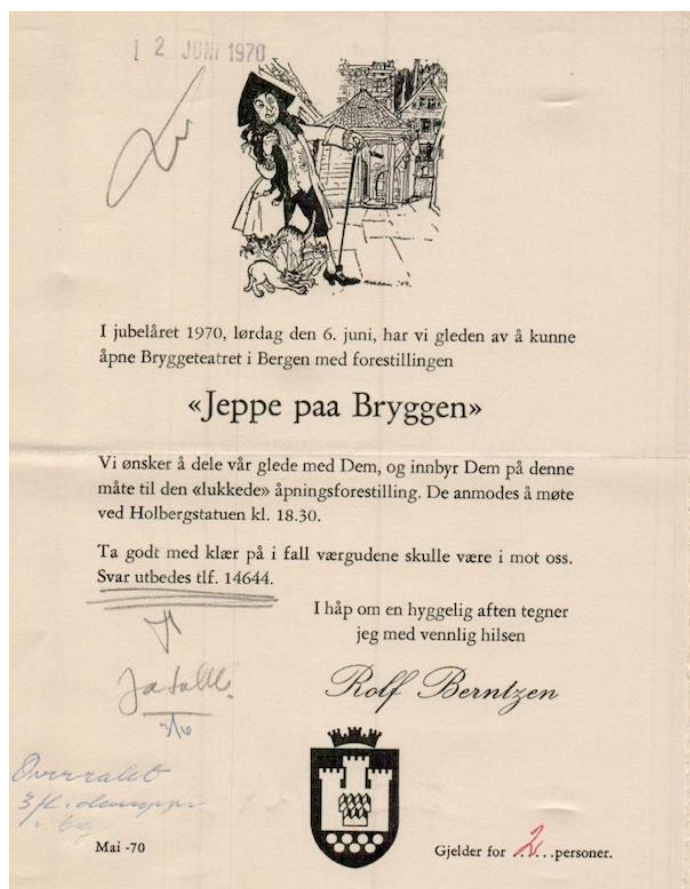 2 JUNI 1970
I jubelåret 1970, lørdag den 6. juni, har vi gleden av å kunne
åpne Bryggeteatret i Bergen med forestillingen
«Jeppe paa Bryggen»
Vi ønsker å dele vår glede med Dem, og innbyr Dem på denne
måte til den «lukkede» åpningsforestilling. De anmodes å møte
ved Holbergstatuen kl. 18.30.
Ta godt med klær på i fall værgudene skulle være i mot oss.
Svar utbedes tlf. 14644.
I håp om en hyggelig aften tegner
jeg med vennlig hilsen
Rolf Berntzen
3/6
Mai -70
Gjelder for 2...personer.